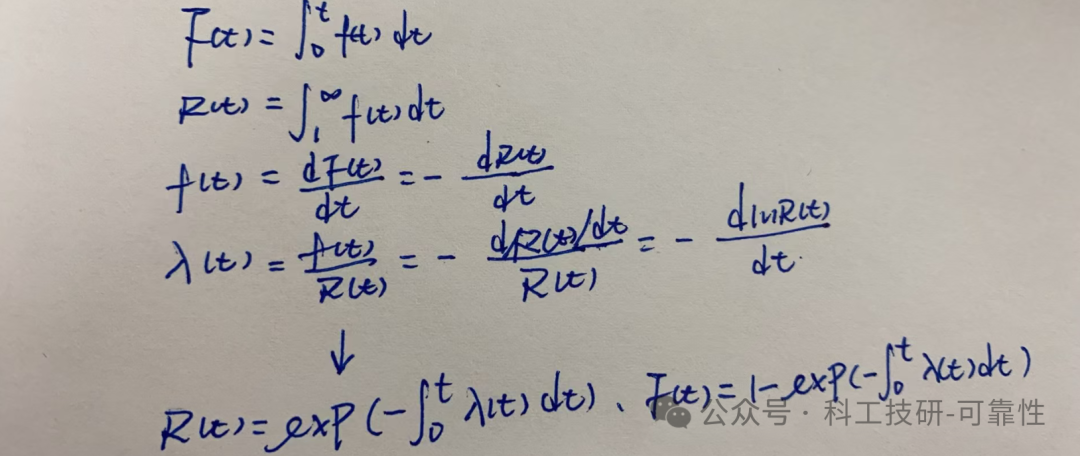 F(t) = ∫₀ᵗ f(t) dt
R(t) = ∫₁^∞ f(t) dt
f(t) = dF(t)/dt = - dR(t)/dt
λ(t) = f(t)/R(t) = - (dR(t)/dt)/R(t) = - dlnR(t)/dt.
↓
R(t) = exp(-∫₀ᵗ λ(t) dt)、F(t) = 1-exp(-∫₀ᵗ λ(t) dt)
公众号 · 科工技研-可靠性